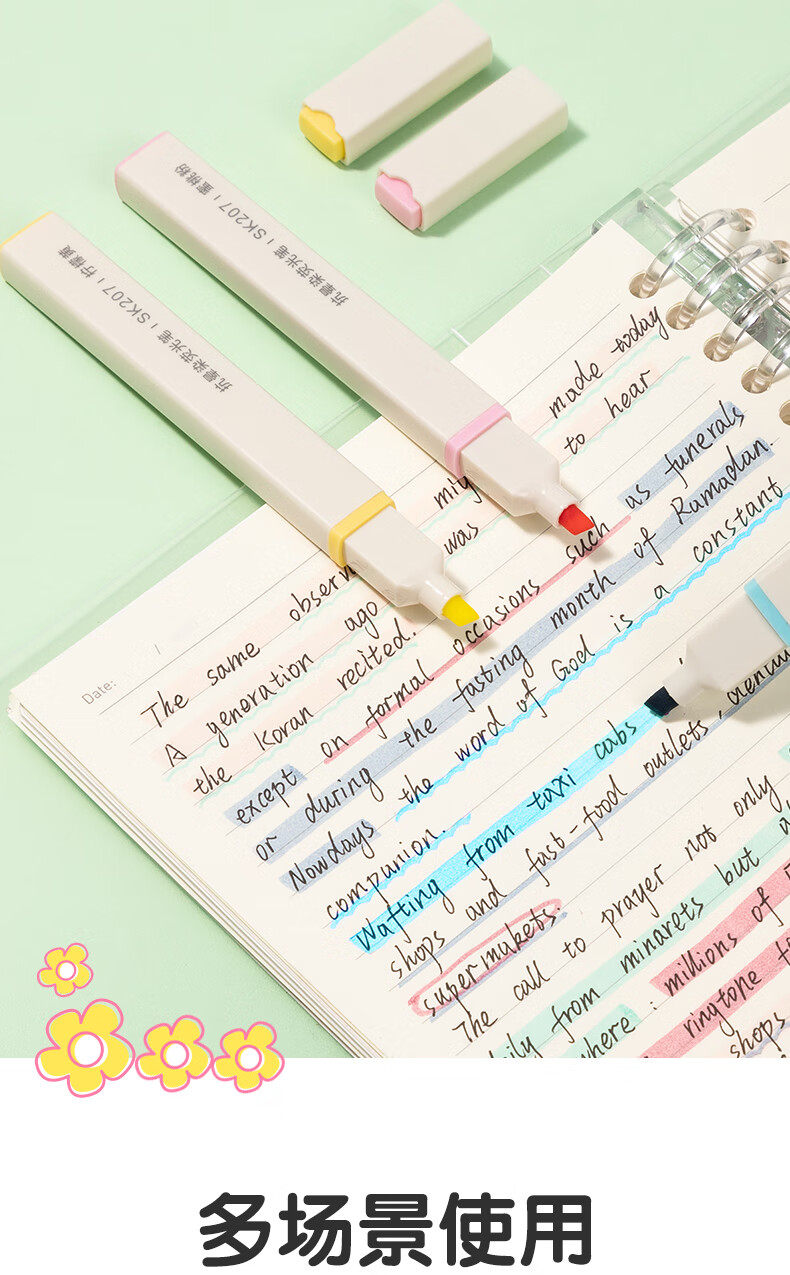 抗晕染荧光笔 | SK207 | 蜜桃粉
抗晕染荧光笔 | SK207 | 柠檬黄
Date:
made today
to hear
was
The same
A generation ago
the Koran recited.
except on formal occasions such as funerals
or during the fasting month of Ramadan.
Nowdays the word of God is a constant
companion.
Wafting from taxi cabs
shops and fast-food outlets,
supermakets.
The call to prayer not only
from minarets but
: millions of
ringtone
shops
多场景使用